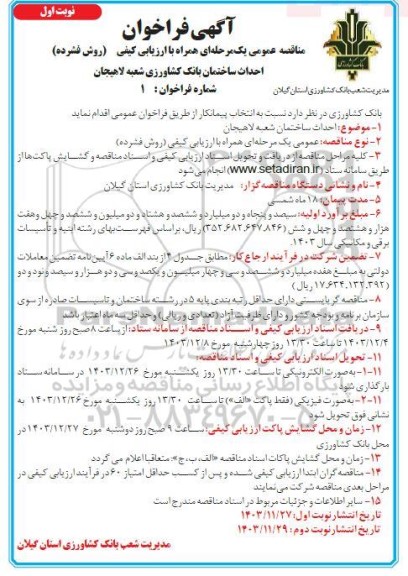 نوبت اول
آگهی فراخوان
مناقصه عمومی یک‌مرحله‌ای همراه با ارزیابی کیفی (روش فشرده)
احداث ساختمان بانک کشاورزی شعبه لاهیجان
شماره فراخوان: ۱
بانک کشاورزی
مدیریت شعب بانک کشاورزی استان گیلان
بانک کشاورزی در نظر دارد نسبت به انتخاب پیمانکار از طریق فراخوان عمومی اقدام نماید
۱-موضوع: احداث ساختمان شعبه لاهیجان
۲-نوع مناقصه: عمومی یک مرحله‌ای همراه با ارزیابی کیفی (روش فشرده)
۳-کلیه مراحل مناقصه از دریافت و تحویل اسناد ارزیابی کیفی و اسناد مناقصه و گشایش پاکت‌ها از
طریق سامانه ستاد (www.setadiran.ir) انجام می‌شود
۴-نام و نشانی دستگاه مناقصه‌گزار: مدیریت بانک کشاورزی استان گیلان
۵-مدت پیمان: ۱۸ ماه شمسی
۶-مبلغ برآورد اولیه: سیصد و پنجاه و دو میلیارد و ششصد و هشتاد و دو میلیون و ششصد و چهل و هفت
هزار و هشتصد و چهل و شش (۳۵۲,۶۸۲,۶۴۷,۸۴۶) ریال، براساس فهرست‌بهای رشته ابنیه و تأسیسات
برقی و مکانیکی سال ۱۴۰۳.
۷-تضمین شرکت در فرآیند ارجاع کار: مطابق جدول ۴ از بند الف ماده ۶ آیین نامه تضمین معاملات
دولتی به مبلغ هفده میلیارد و ششصد و سی و چهار میلیون و یکصد و سی و دو هزار و سیصد و نود و دو
(۱۷,۶۳۴,۱۳۲,۳۹۲ ریال)
۸-مناقصه گر بایستی دارای حداقل رتبه بندی پایه ۵ در رشته ساختمان و تاسیسات صادره از سوی
سازمان برنامه و بودجه کشور و دارای ظرفیت آزاد (تعدادی و ریالی) و حداقل سه ماه اعتبار باشد
۹-دریافت اسناد ارزیابی کیفی و اسناد مناقصه از سامانه ستاد: از ساعت ۸ صبح روز شنبه مورخ
۱۴۰۳/۱۲/۴ تا ساعت ۱۳/۳۰ روز چهارشنبه مورخ ۱۴۰۳/۱۲/۸
۱۱-تحویل اسناد ارزیابی کیفی و اسناد مناقصه:
۱-۱۱-به‌صورت الکترونیکی تا ساعت ۱۳/۳۰ روز یکشنبه مورخ ۱۴۰۳/۱۲/۲۶ در سامانه ستاد
بارگذاری شود
۲-۱۱-به‌صورت فیزیکی (فقط پاکت «الف») تا ساعت ۱۳/۳۰ روز یکشنبه مورخ ۱۴۰۳/۱۲/۲۶ به
نشانی فوق تحویل شود
۱۲-زمان و محل گشایش پاکت ارزیابی کیفی: ساعت ۹ صبح روز دوشنبه مورخ ۱۴۰۳/۱۲/۲۷ در
محل بانک کشاورزی
۱۳-زمان و محل گشایش پاکات اسناد مناقصه «الف، ب، ج»: متعاقبا اعلام می گردد
۱۴-مناقصه‌گران ابتدا ارزیابی کیفی شده و پس از کسب حداقل امتیاز ۶۰ در فرآیند ارزیابی کیفی در
مراحل بعدی مناقصه شرکت می‌نمایند
۱۵-سایر اطلاعات و جزئیات مربوط در اسناد مناقصه مندرج است
تاریخ انتشار نوبت اول: ۱۴۰۳/۱۱/۲۷
تاریخ انتشار نوبت دوم: ۱۴۰۳/۱۱/۲۹
مدیریت شعب بانک کشاورزی استان گیلان
پایگاه اطلاع رسانی مناقصه و مزایده
۰۲۱-۸۸۳۴۹۶۷۰-۵